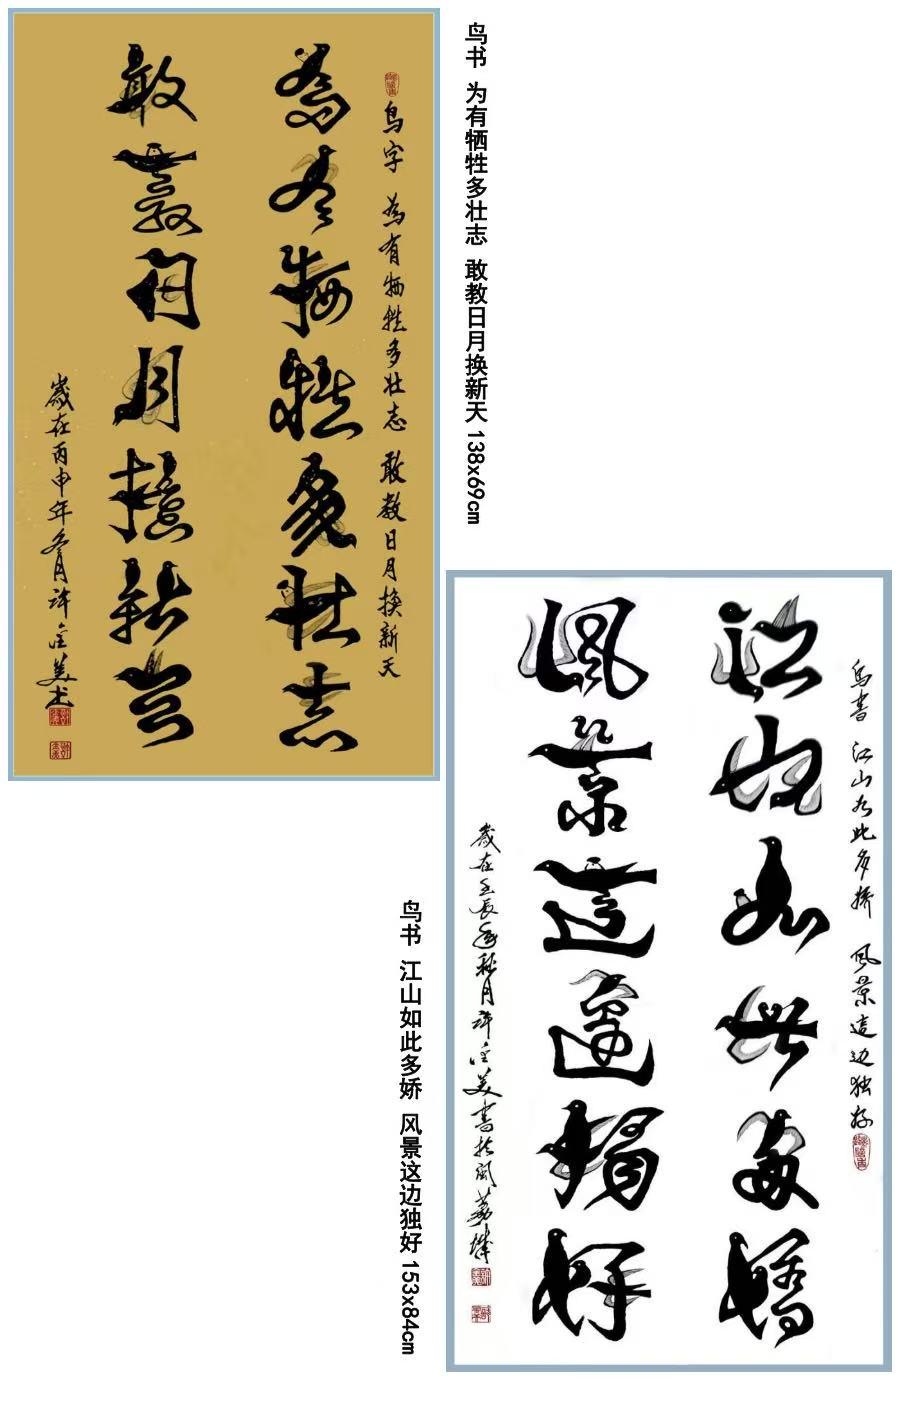 為有犧牲多壯志
敢教日月換新天
鸟字 為有牺牲多壮志 敢教日月换新天
歲在丙申年冬月许金美书
鸟书 为有牺牲多壮志 敢教日月换新天 138x69cm
江山如此多嬌
風景這邊獨好
鸟書 江山如此多娇 風景這边独好
歲在壬辰年秋月许金美書於闽荔城
鸟书 江山如此多娇 风景这边独好 153x84cm